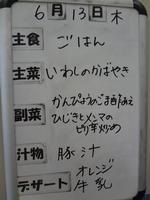 6月13日木
主食 ごはん
主菜 いわしのかばやき
副菜 かんぴょうのごま酢あえ
ひじきとメンマの
ピリ辛炒め
汁物 豚汁
デザート オレンジ
牛乳